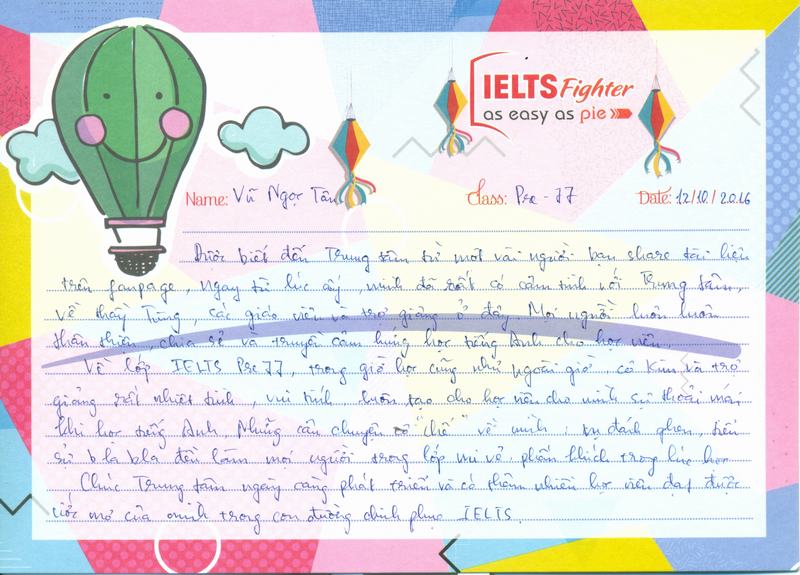 IELTS Fighter
as easy as pie
Name: Vũ Ngọc Tân
Class: Pre - 77
Date: 12/10/2016
Được biết đến Trung tâm từ một vài người bạn share tài liệu
trên fanpage, ngay từ lúc ấy, mình đã rất có cảm tình với Trung tâm,
về thầy Tùng, các giáo viên và trợ giảng ở đây. Mọi người luôn luôn
thân thiện, chia sẻ và truyền cảm hứng học tiếng Anh cho học viên.
Về lớp IELTS Pre 77, trong giờ học cũng như ngoài giờ, cô Kim và trợ
giảng rất nhiệt tình, vui tính luôn tạo cho học viên cho mình sự thoải mái
khi học tiếng Anh. Những câu chuyện cô "chế" về mình: vụ đánh ghen, tiểu
sử bla bla đến làm mọi người trong lớp vui vẻ, phấn khích trong lúc học
Chúc Trung tâm ngày càng phát triển và có thêm nhiều học viên đạt được
ước mơ của mình trong con đường chinh phục IELTS.